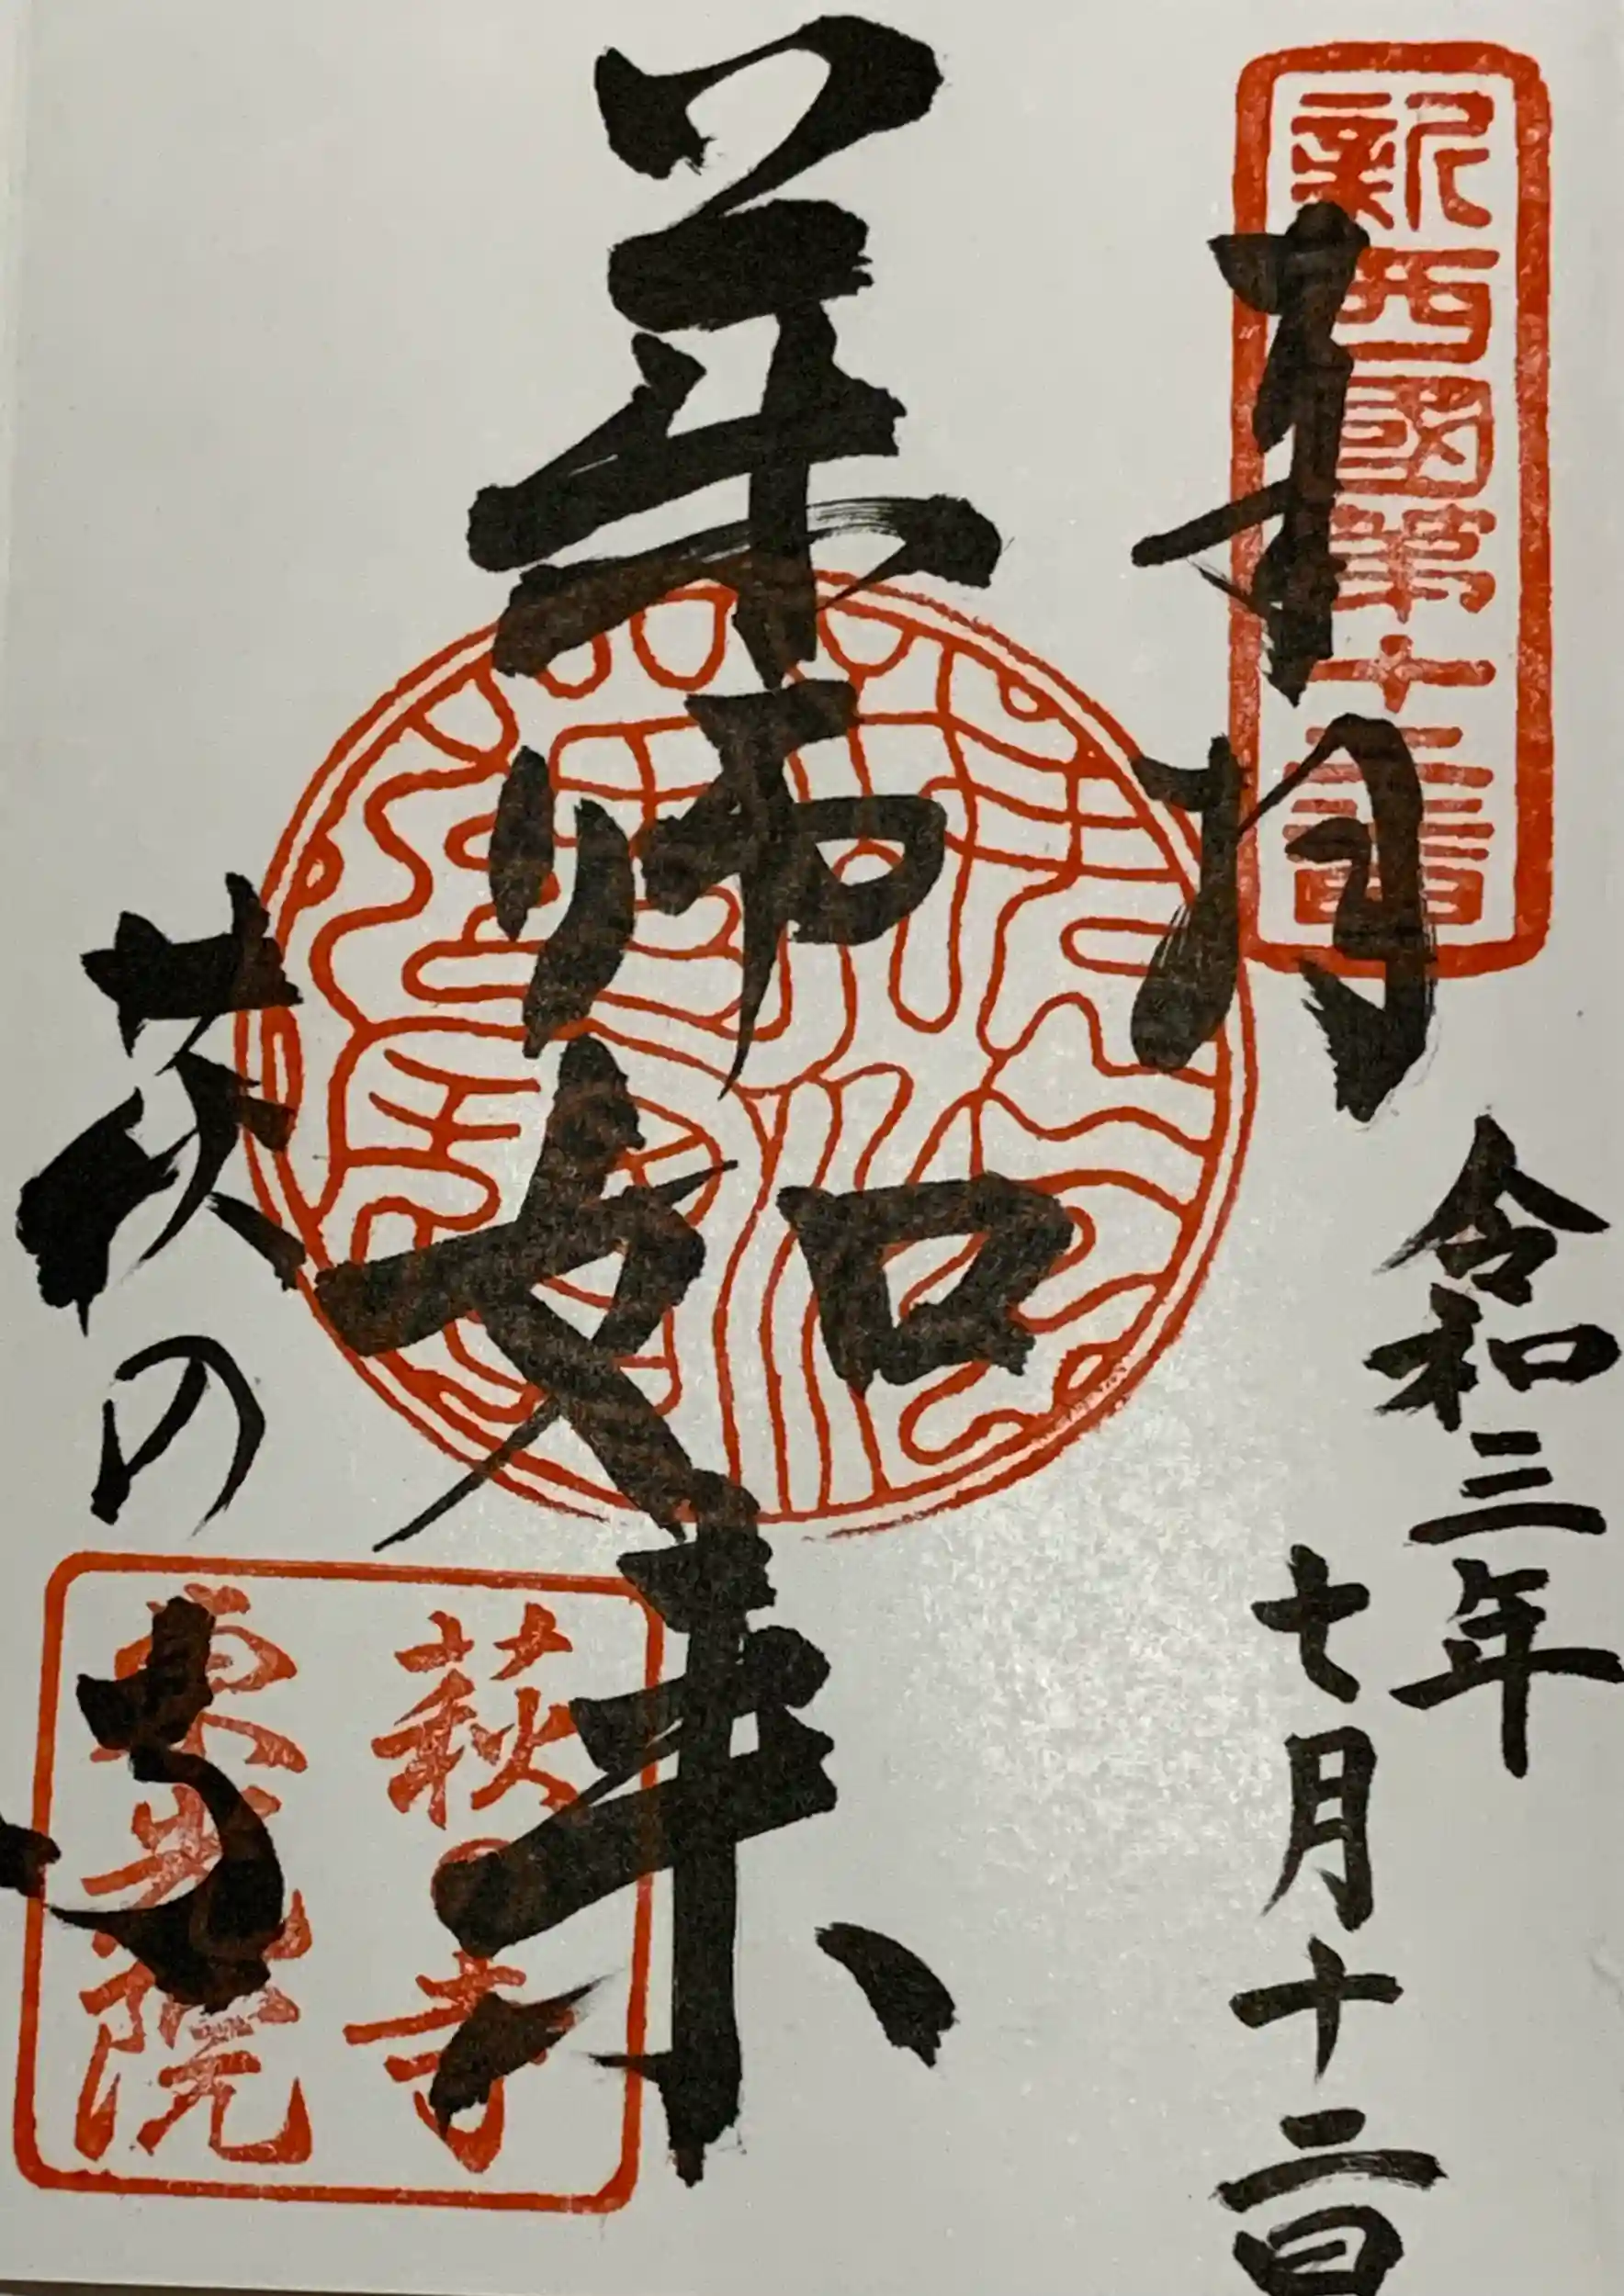 奉拝
新西國第十二番
令和三年
七月十二日
薬師如来
萩の寺
萩の寺
東光院